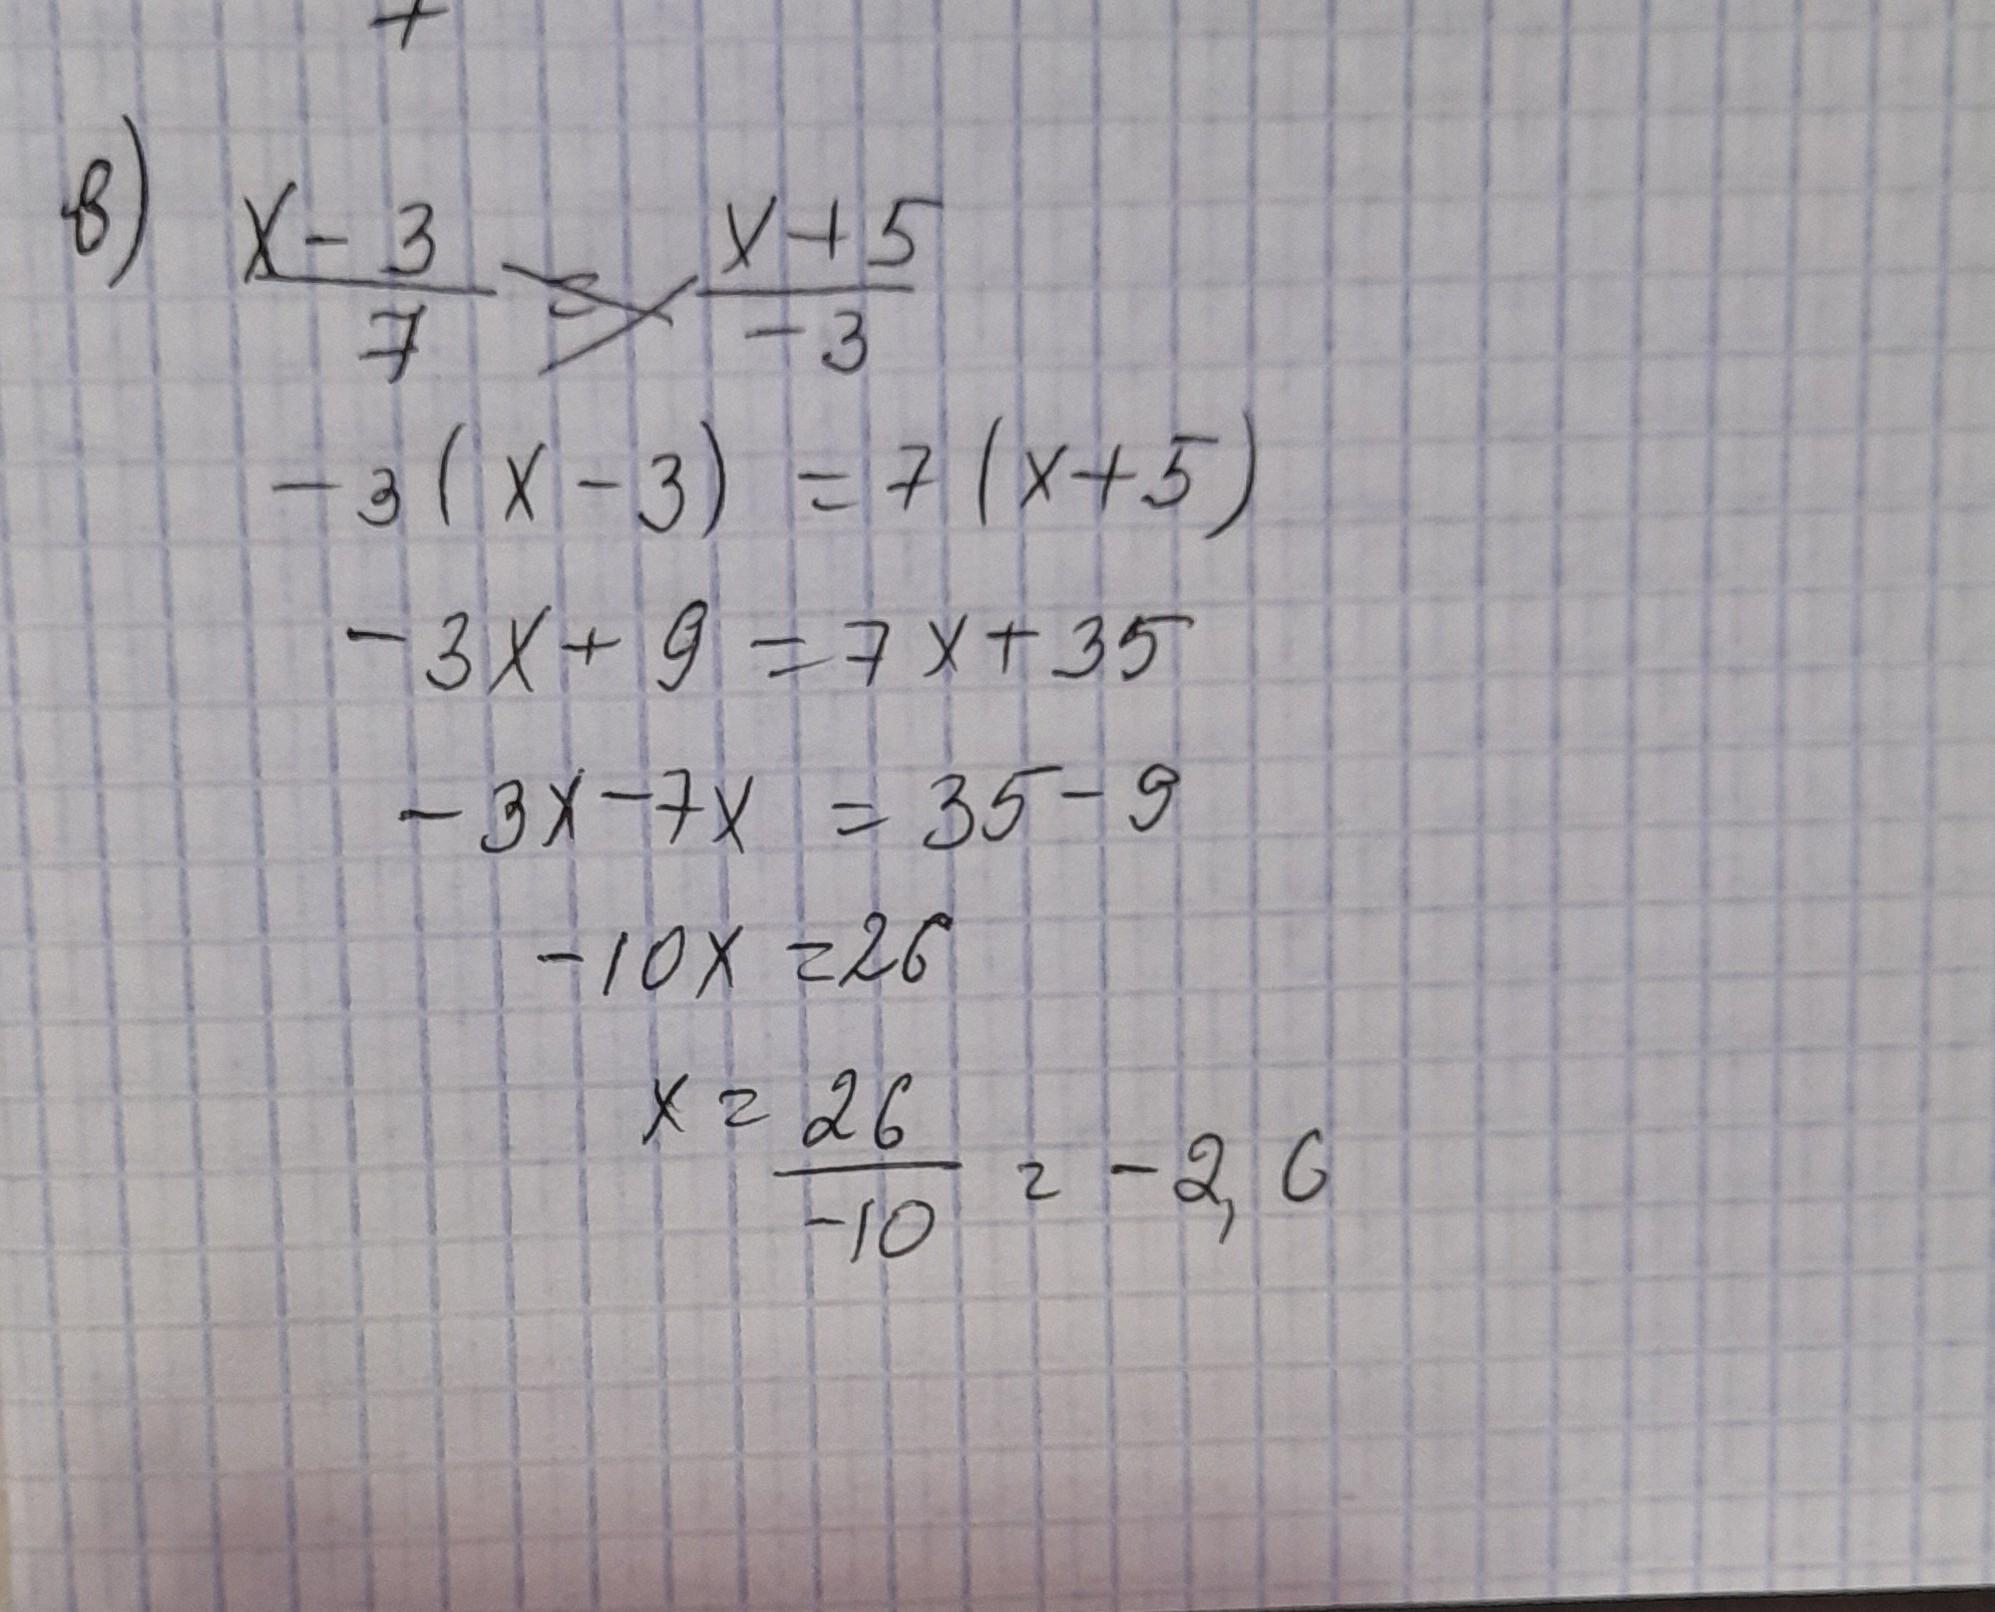 в) (x-3)/7 = (x+5)/-3
-3(x-3) = 7(x+5)
-3x+9=7x+35
-3x-7x = 35-9
-10x=26
x = 26/-10 = -2,6